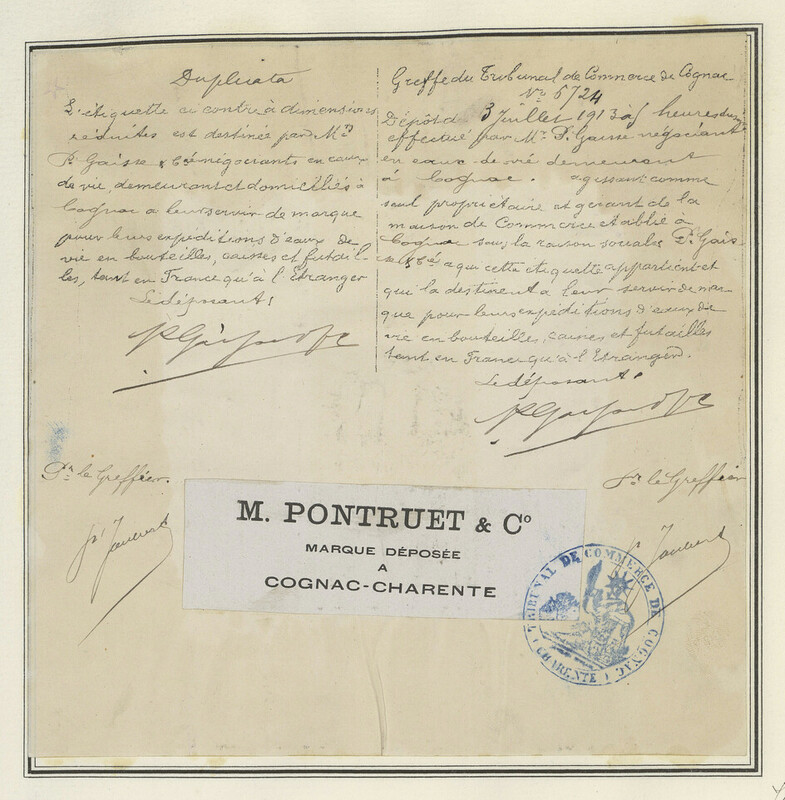 Duplicata
L'étiquette ci contre à dimensions
réduites est destinée par Mrs
P. Gaisse & Cie négociants en eaux
de vie, demeurant et domiciliés à
Cognac a leur servir de marque
pour leurs expéditions d'eaux de
vie en bouteilles, caisses et futail-
les, tant en France qu'à l'Etranger
Le déposant,
Pr le Greffier.
Greffe du Tribunal de Commerce de Cognac
No 6724
Dépôt du 3 Juillet 1913 à 5 heures du
effectué par Mr P. Gaisse négociant
en eaux de vie demeurant
à Cognac. agissant comme
seul propriétaire et gérant de la
maison de Commerce établie à
Cognac sous la raison sociale P. Gais-
se & Cie a qui cette étiquette appartient et
qui la destinent a leur servir de mar-
que pour leurs expéditions d'eaux de
vie en bouteilles, caisses et futailles
tant en France qu'à l'Etranger.
Le déposant.
Pr le Greffier
M. PONTRUET & Co
MARQUE DÉPOSÉE
A
COGNAC-CHARENTE
TRIBUNAL DE COMMERCE DE COGNAC
( CHARENTE )